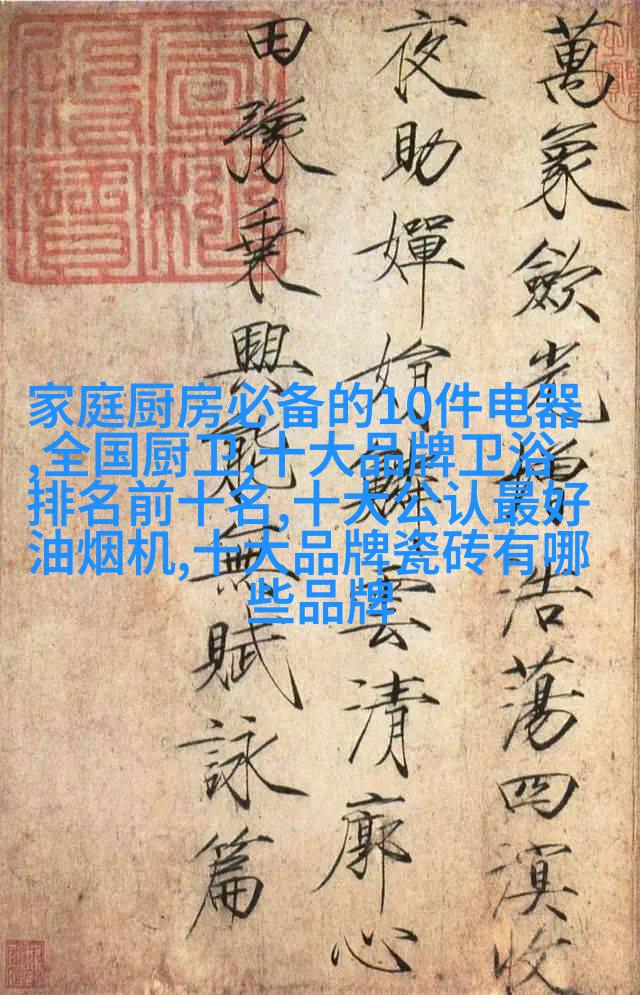 萬象歛光增浩蕩四溟收
夜助嬋娟鱗雲清廓心
田豫乘興能無賦詠篇
家庭厨房必备的10件电器
,全国厨卫,十大品牌卫浴
排名前十名,十大公认最好
油烟机,十大品牌瓷砖有哪
些品牌